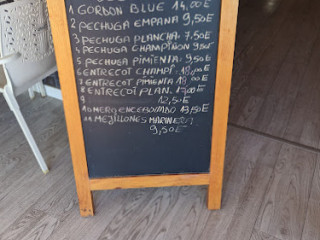 1 GORDON BLUE 14,00E
2 PECHUGA EMPANA 9,50E
3 PECHUGA PLANCHA 7.50E
4 PECHUGA CHAMPIÑON 9,50E
5 PECHUGA PIMIENTA 9,50E
6 ENTRECOT CHAMPI. 18,00E
7 ENTRECOT PIMIENTA 18,00E
8 ENTRECOT PLAN. 17,00E
9 12,50E
10 ENCEBOLLADO 13,50E
11 MEJILLONES MARINERA
9,50E